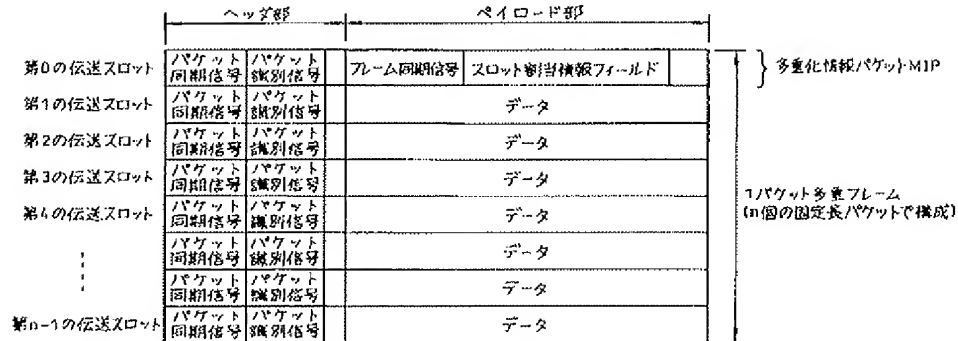 ヘッダ部 ペイロード部
第0の伝送スロット パケット同期信号 パケット識別信号 フレーム同期信号 スロット割当情報フィールド 多重化情報パケットMIP
第1の伝送スロット パケット同期信号 パケット識別信号 データ
第2の伝送スロット パケット同期信号 パケット識別信号 データ
第3の伝送スロット パケット同期信号 パケット識別信号 データ
第4の伝送スロット パケット同期信号 パケット識別信号 データ
パケット同期信号 パケット識別信号 データ
パケット同期信号 パケット識別信号 データ
第n-1の伝送スロット パケット同期信号 パケット識別信号 データ
1パケット多重フレーム
(n個の固定長パケットで構成)